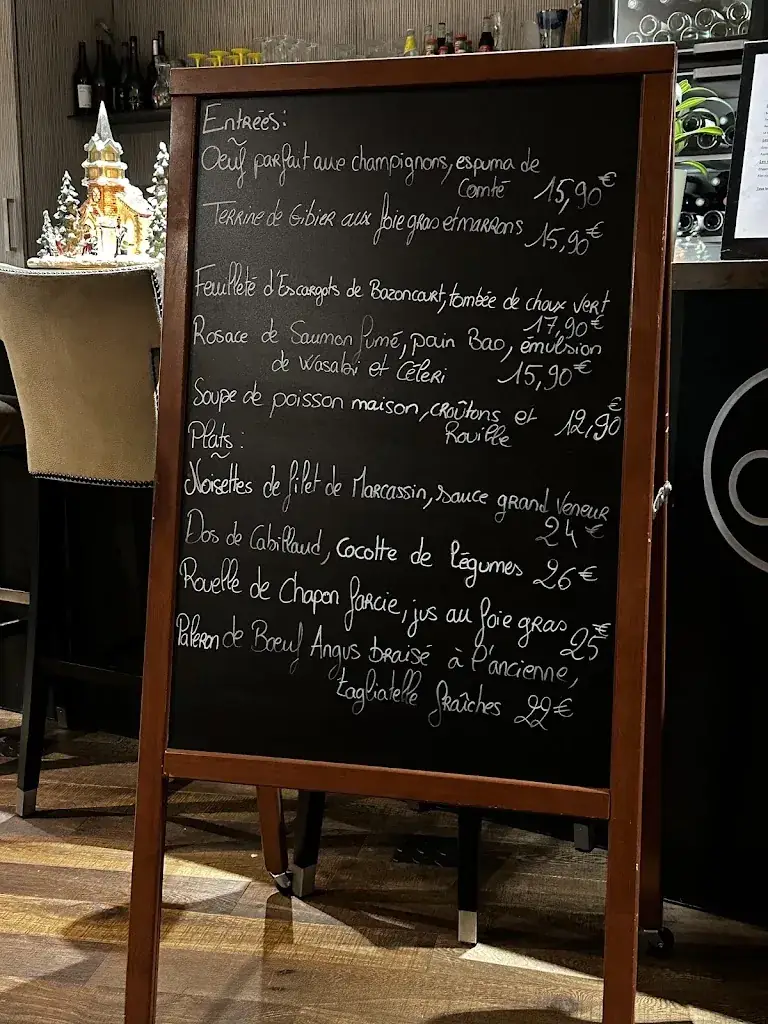 Entrées:
Oeuf parfait aux champignons, espuma de
Comté 15,90€
Terrine de Gibier aux foie gras et marrons 15,90€
Feuilleté d'Escargots de Bazoncourt, tombée de choux vert
17,90€
Rosace de Saumon fumé, pain Bao, émulsion
de Wasabi et Céleri 15,90€
Soupe de poisson maison, croûtons et 12,90€
Rouille
Plats:
Noisettes de filet de Marcassin, sauce grand Veneur
24€
Dos de Cabillaud, Cocotte de légumes 26€
Rouelle de Chapon farcie, jus au foie gras 25€
Paleron de Boeuf Angus braisé à l'ancienne,
tagliatelle fraîches 22€